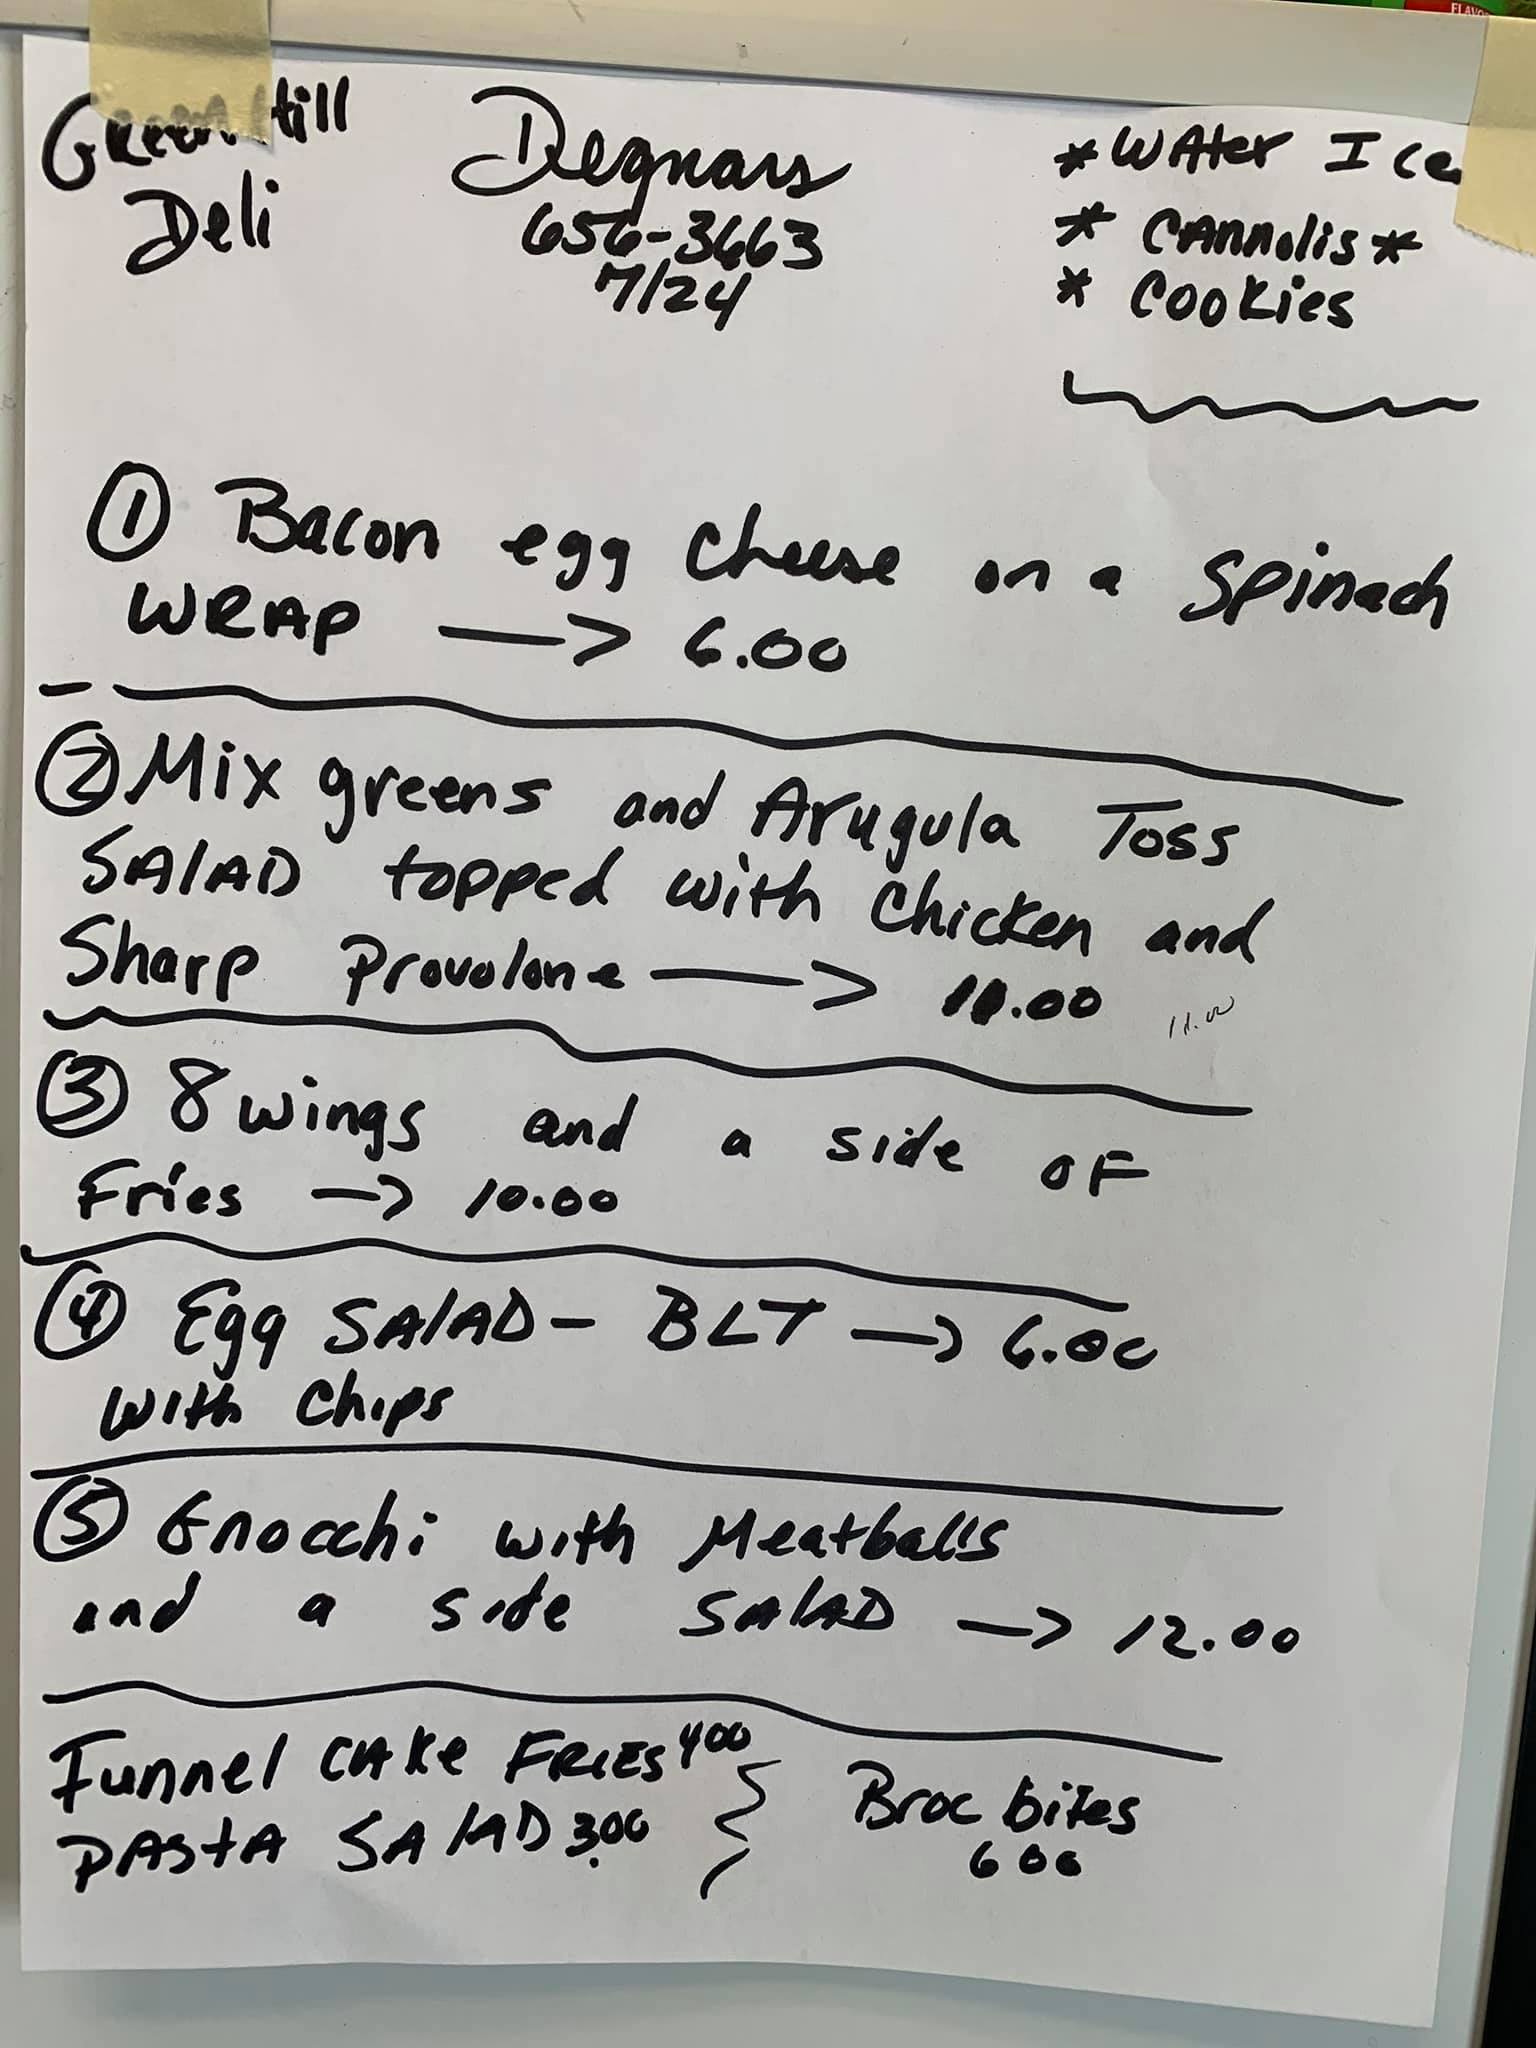 Green Hill
Deli
Degnars
656-3663
7/24
* Water Ice
* Cannolis *
* Cookies
① Bacon egg cheese on a Spinach
WRAP —> 6.00
② Mix greens and Arugula Toss
SAlAD topped with chicken and
Sharp Provolone —> 11.00 11.00
③ 8 wings and a side of
Fries —> 10.00
④ Egg SAlAD - BLT —> 6.00
with chips
⑤ Gnocchi with Meatballs
and a side SAlAD —> 12.00
Funnel CAKe FRIES 400
PAStA SAlAD 3.00
Broc bites
600